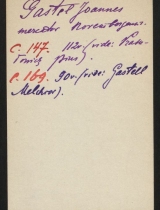 Gastol Joannes
mercator Norembergens.
C. 147. 112v. (vide:
pius).
C. 169. 90v. (vide: Gastell
Melchior).